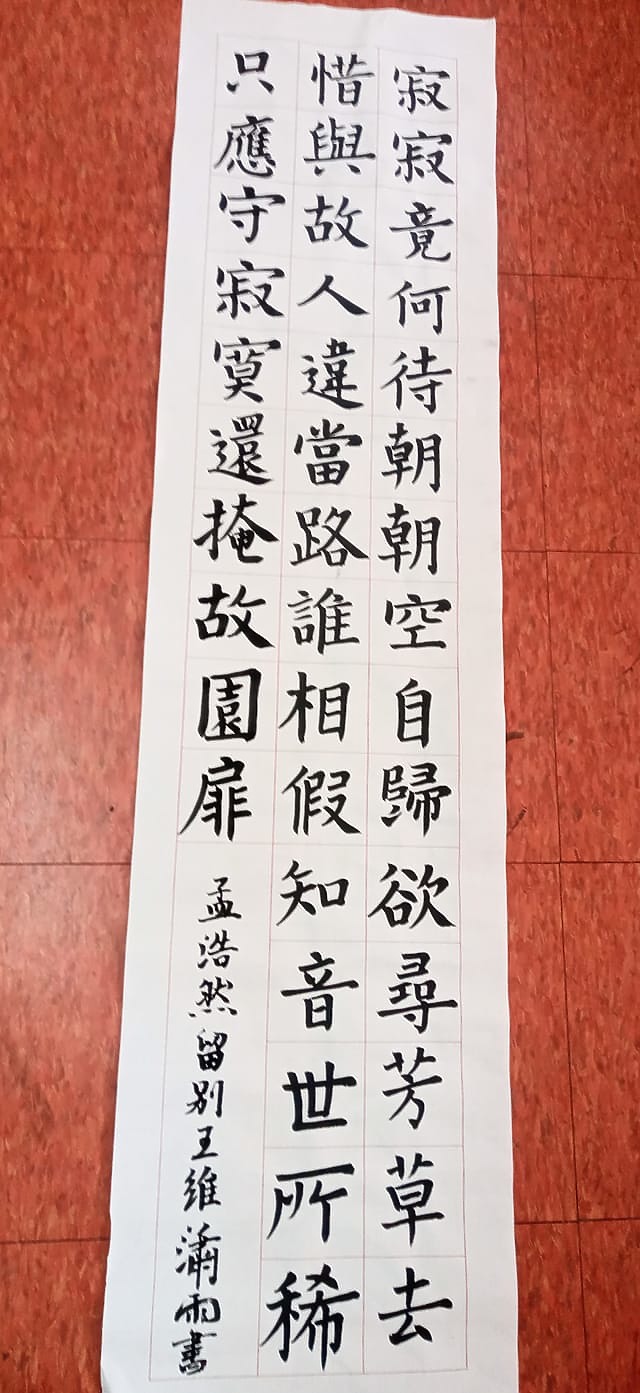 寂寂竟何待朝朝空自歸欲尋芳草去
惜與故人違當路誰相假知音世所稀
只應守寂寞還掩故園扉
孟浩然留别王維瀟雨書